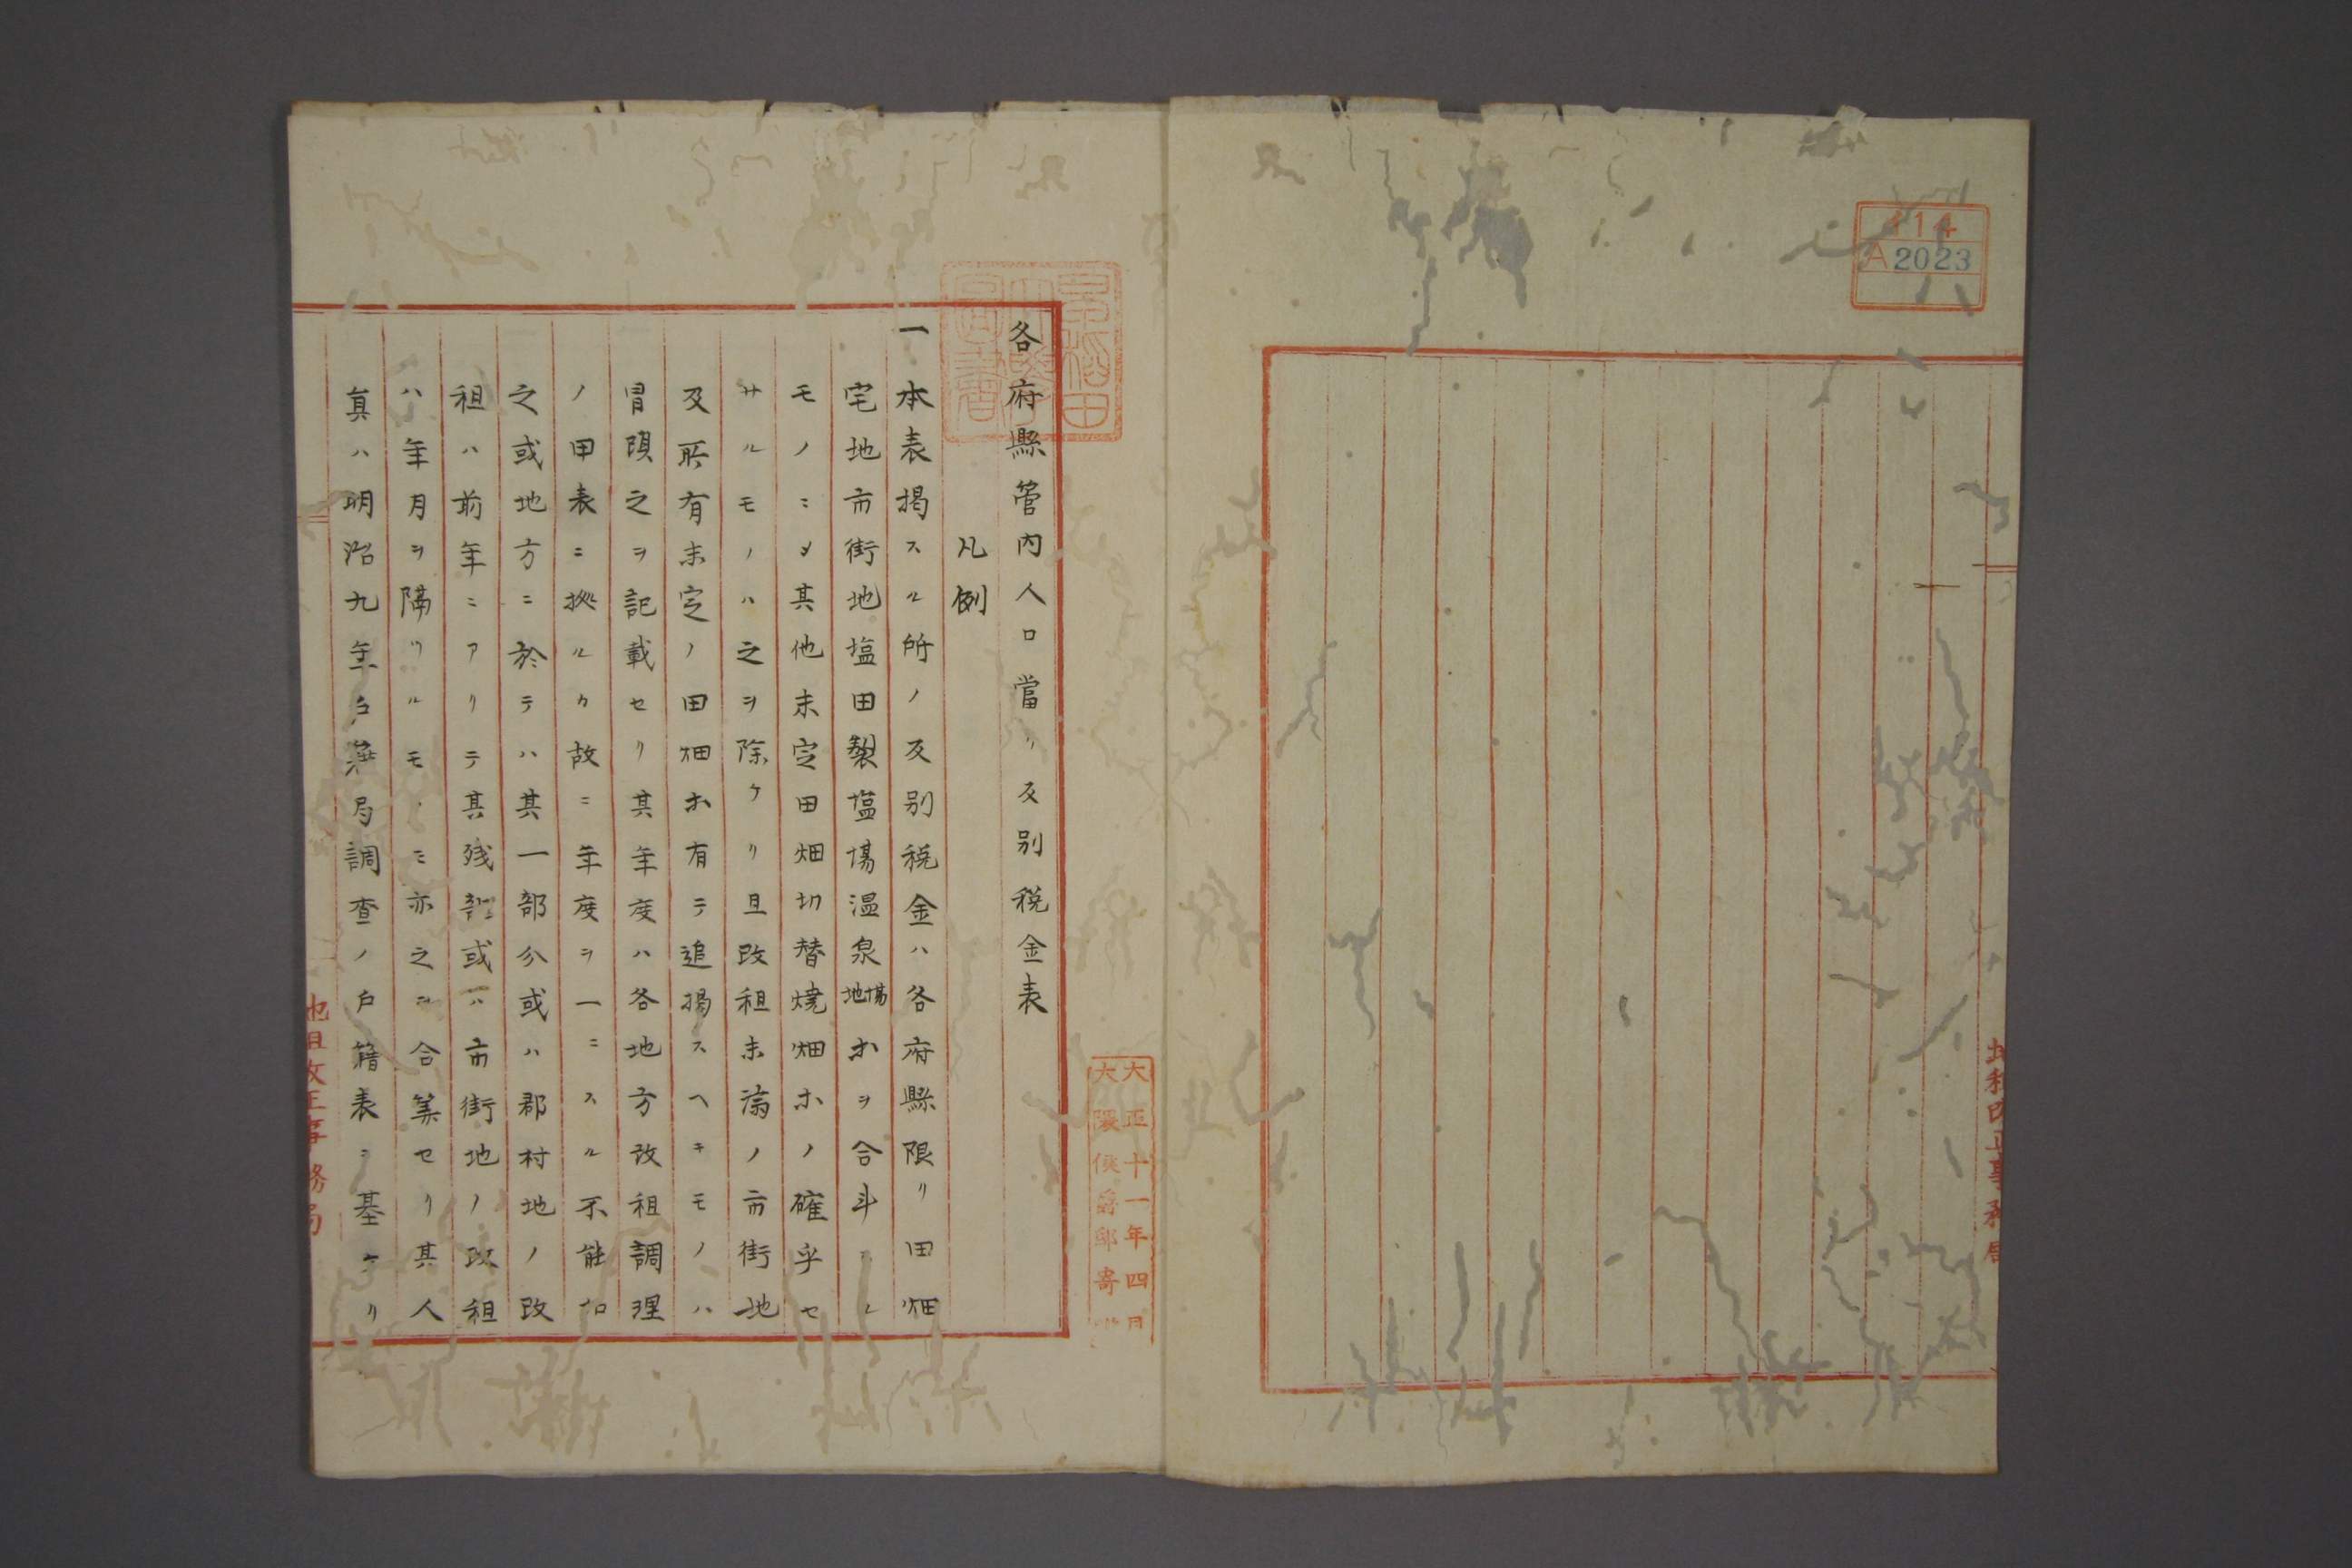 114
A 2023
地租改正事務局
各府縣管内人口當リ反別税金表
凡例
一本表掲スル所ノ反別税金ハ各府縣限リ田畑
宅地市街地塩田製塩場温泉場地ホヲ合斗スル
モノニメ其他未定田畑切替焼畑ホノ確乎セ
サルモノハ之ヲ除ケリ且改租未済ノ市街地
及所有未定ノ田畑ホ有テ追掲スヘキモノハ
冒頭之ヲ記載セリ其年度ハ各地方改租調理
ノ甲表ニ拠ルカ故ニ年度ヲ一ニスル不能加
之或地方ニ於テハ其一部分或ハ郡村地ノ改
租ハ前年ニアリテ其残部或ハ市街地ノ改租
ハ年月ヲ隔ツルモノモ亦之ヲ合算セリ其人
員ハ明治九年戸籍局調査ノ戸籍表ニ基ケリ
早稲田大學圖書
大正十一年四月
大隈侯爵邸寄贈
地租改正事務局